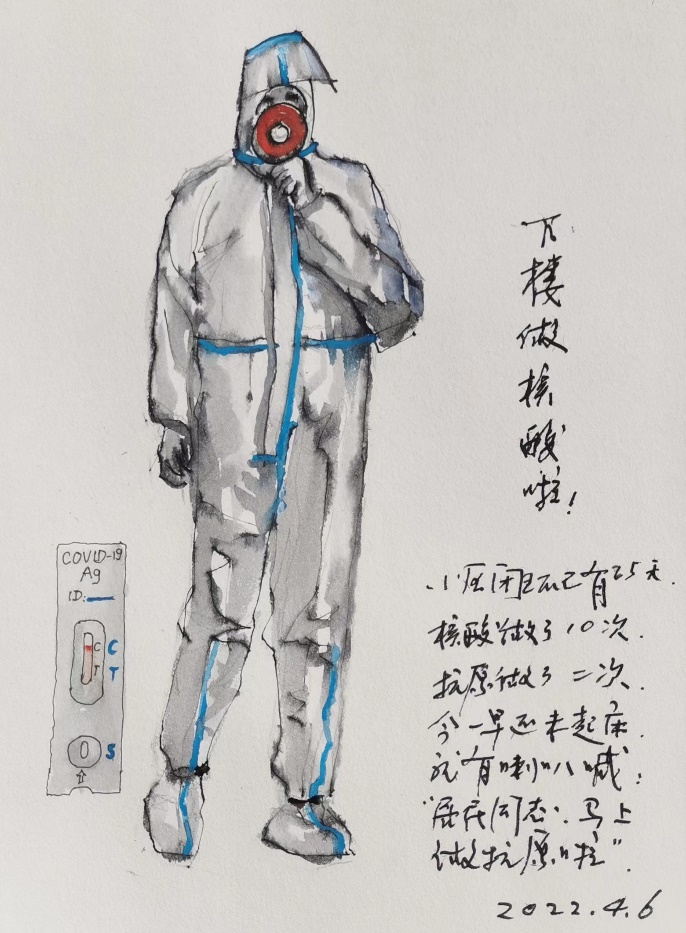 下楼做核酸啦！
COVID-19
Ag
ID:
C
T
C
T
S
小区闭环已有25天.
核酸做了10次.
抗原做了二次.
今一早还未起床.
就有喇叭喊：
"居民同志.马上
做抗原啦".
2022.4.6